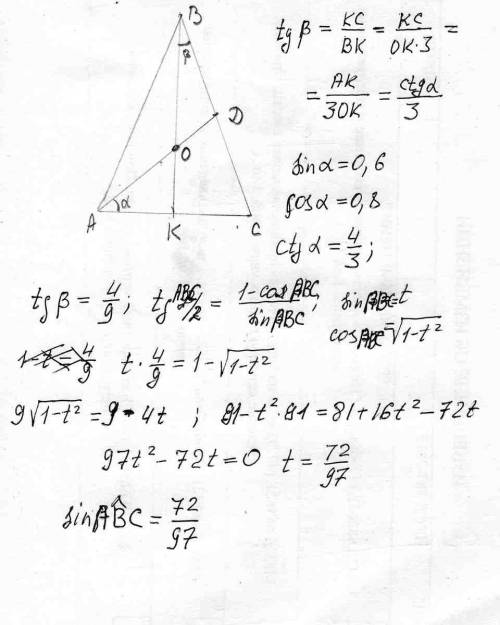 B
β
D
O
A
α
K
C
tg β = KC/BK = KC/OK·3 =
= AK/3OK = ctgα/3
sin α = 0,6
cos α = 0,8
ctg α = 4/3 ;
tg β = 4/9 ; tg ABC/2 = 1-cos ABC/sin ABC ; sin ABC = t
cos ABC = √1-t²
4/9 t · 4/9 = 1 - √1-t²
9√1-t² = 9 - 4t ; 81 - t²·81 = 81 + 16t² - 72t
97t² - 72t = 0 t = 72/97
sin ABC = 72/97